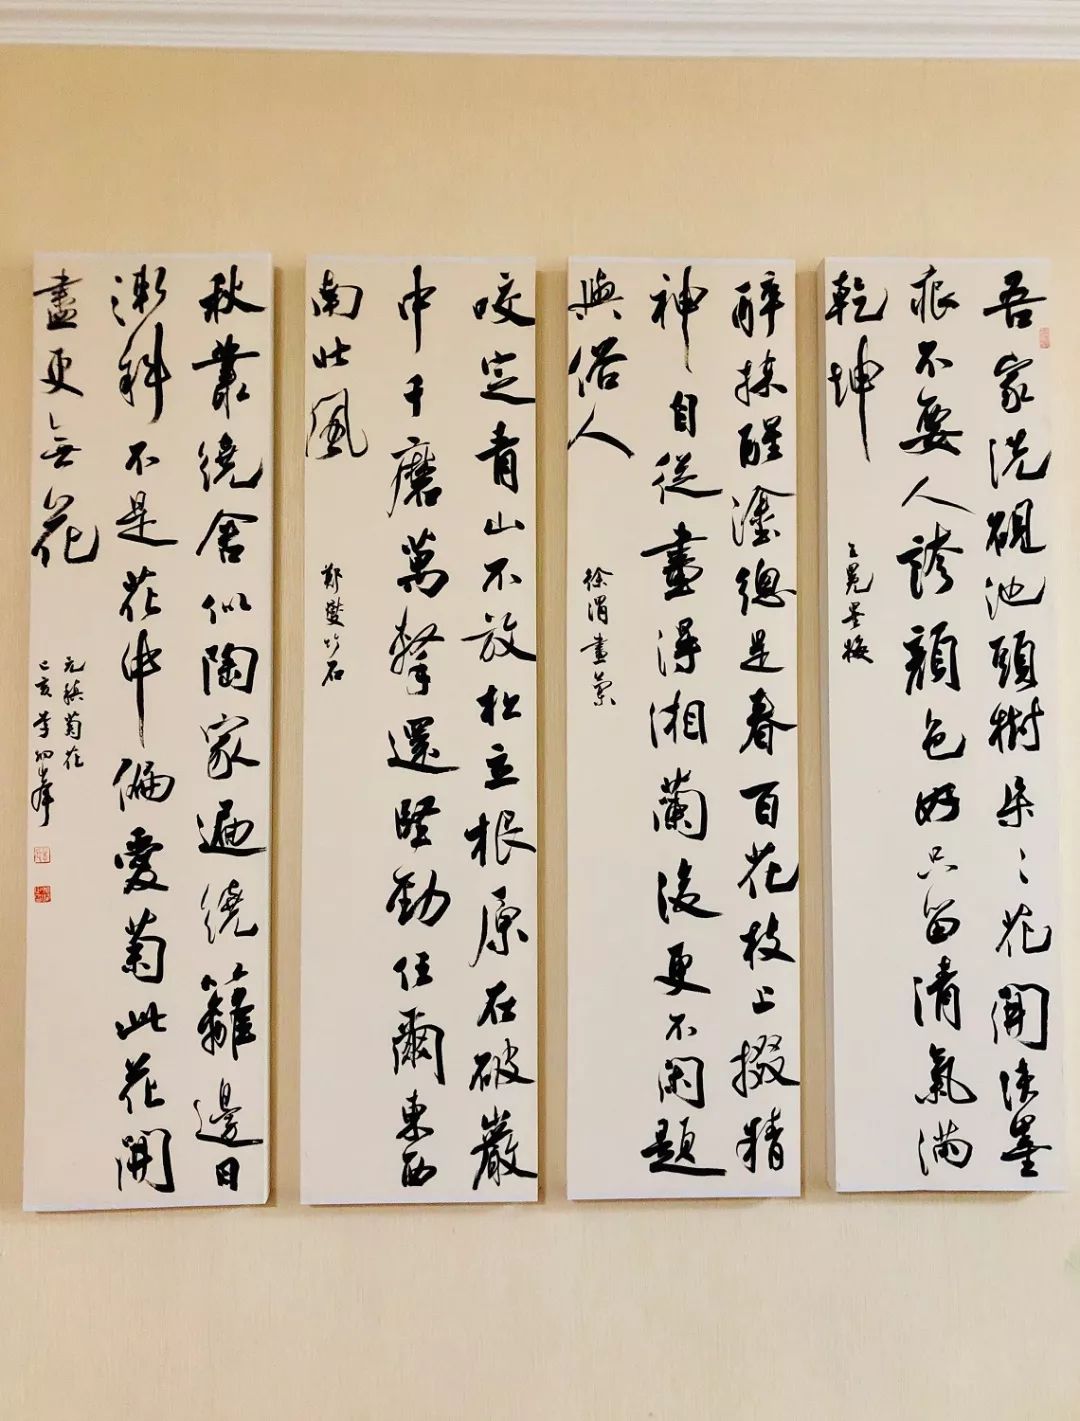 吾家洗硯池頭樹朵〻花開淡墨
痕不要人誇顏色好只留清氣滿
乾坤
王冕墨梅
醉抹醒塗總是春百花枝上掇精
神自從畫得湘蘭後更不閑題
與俗人
徐渭畫蘭
咬定青山不放松立根原在破巖
中千磨萬擊還堅勁任爾東西
南北風
鄭燮竹石
秋叢繞舍似陶家遍繞籬邊日
漸斜不是花中偏愛菊此花開
盡更無花
元稹菊花
己亥李峯